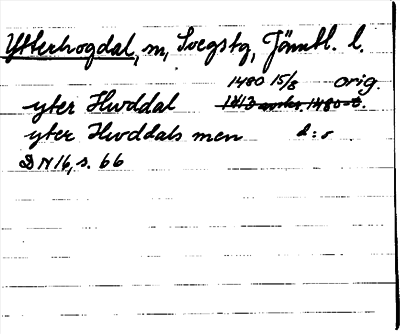 Ytterhogdal, m, Svegstg, Jämtl. l.
1480 15/8 orig.
yter Hwddal
yter Hwddals men d:o
DN 16, s. 66